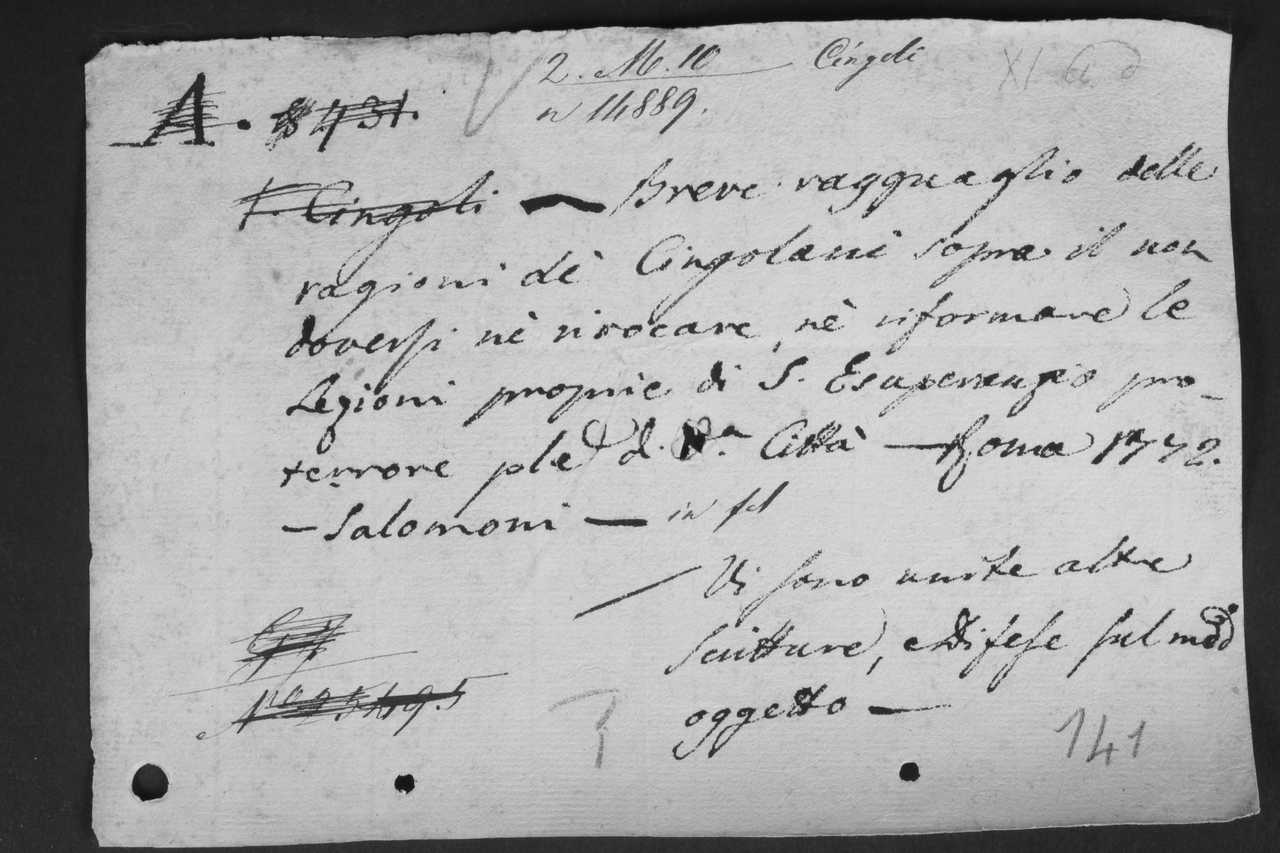 2. M. 10 Cingoli XI
n 14889.
A. 8431.
Cingoli — Breve ragguaglio delle
ragioni dè Cingolani sopra il non
doversi nè rivocare, nè riformare le
Lezioni proprie di S. Esuperanzio pro-
tettore ple d. Città — Roma 1772.
— Salomoni — in fol
Vi sono unite altre
scritture, e Difese sul med
oggetto —
141